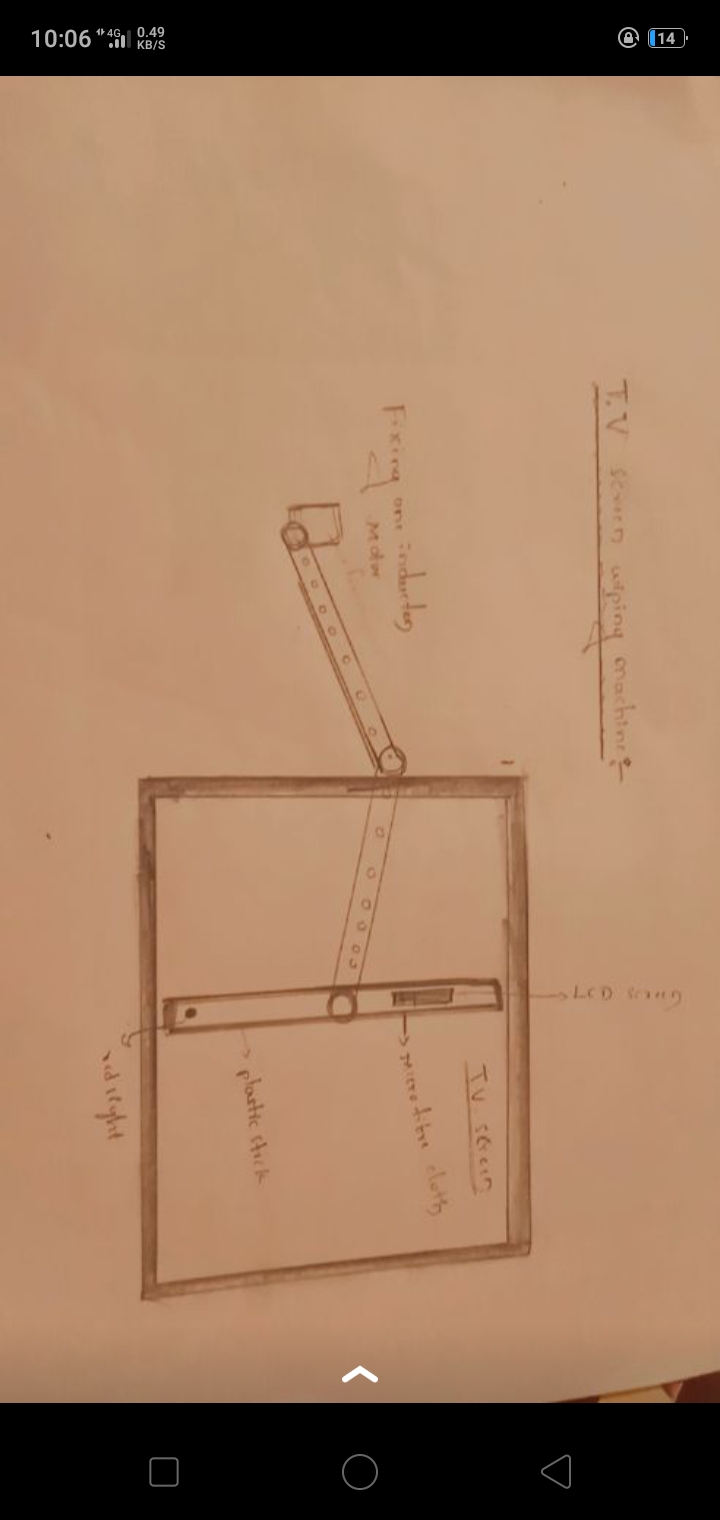 10:06
4G
0.49
KB/S
14
T.V screen wiping machine:-
Fixing one induction
Motor
LCD screen
T.V. screen
microfibre cloth
plastic stick
red light